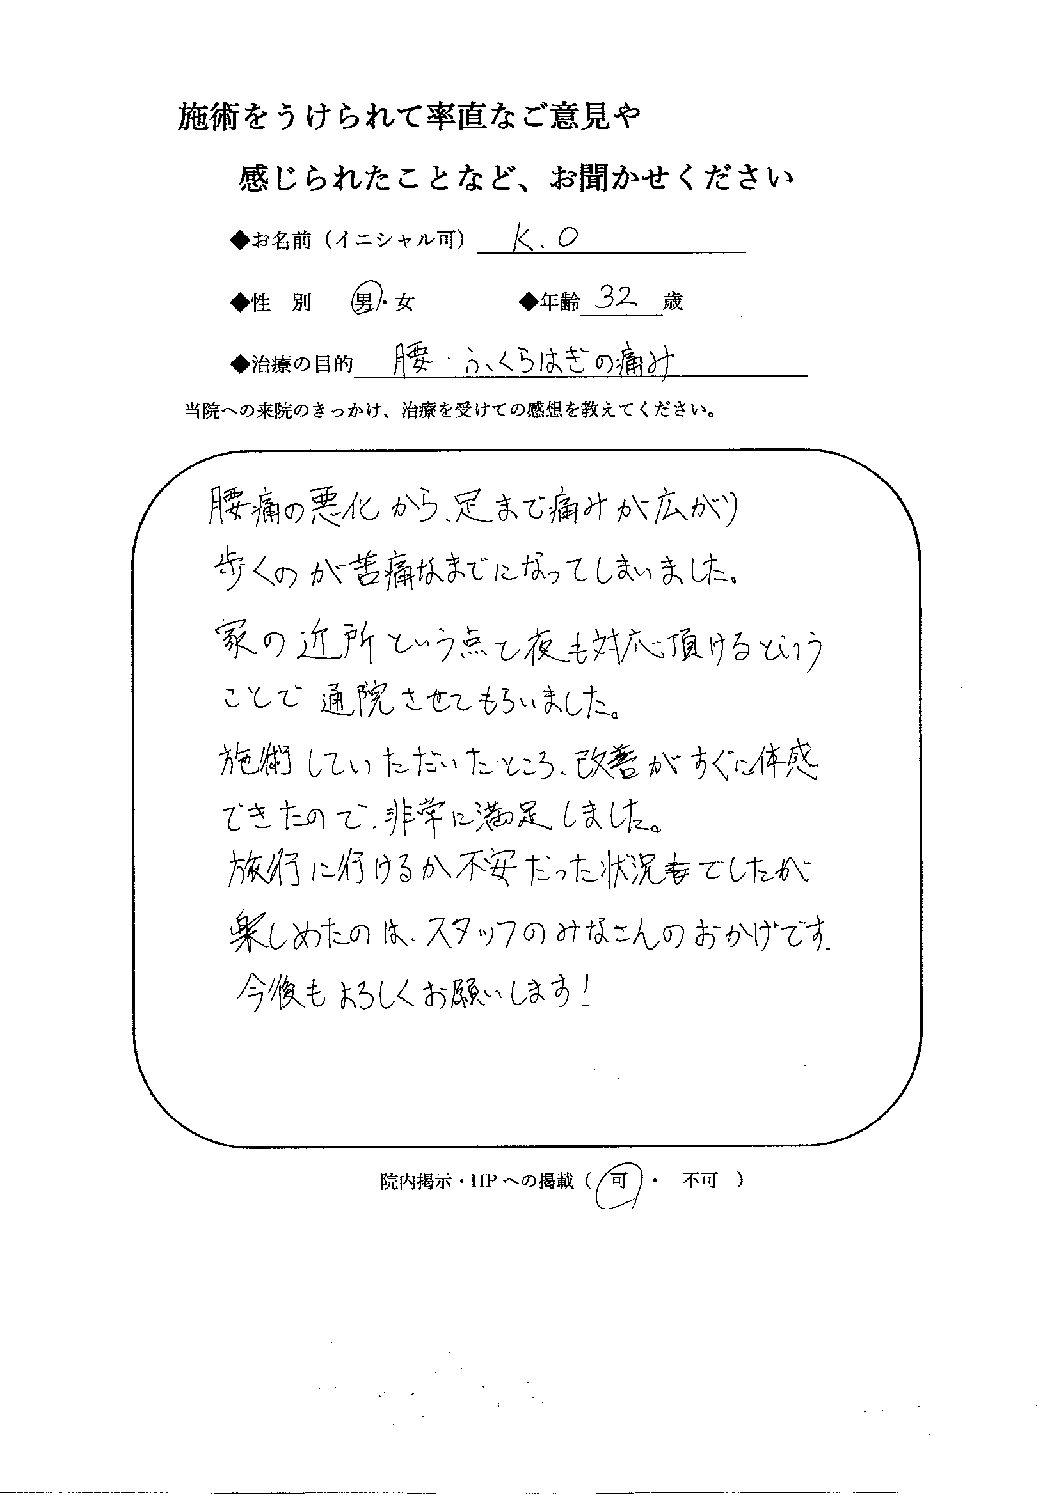 施術をうけられて率直なご意見や
感じられたことなど、お聞かせください
◆お名前（イニシャル可） K.O
◆性 別 男・女 ◆年齢 32 歳
◆治療の目的 腰・ふくらはぎの痛み
当院への来院のきっかけ、治療を受けての感想を教えてください。
腰痛の悪化から、足まで痛みが広がり
歩くのが苦痛なまでになってしまいました。
家の近所という点と夜も対応頂けるという
ことで 通院させてもらいました。
施術していただいたところ、改善がすぐに体感
できたので、非常に満足しました。
旅行に行けるか不安だった状況でしたが
楽しめたのは、スタッフのみなさんのおかげです.
今後もよろしくお願いします！
院内掲示・HPへの掲載（ 可 ・ 不可 ）